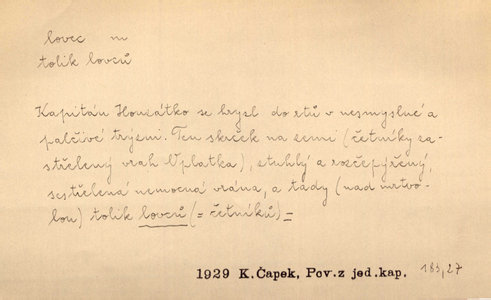 lovec m
tolik lovců
Kapitán Houzátko se hryzl do rtů v nesmyslné a
palčivé trýzni. Ten skrček na zemi (četníky za-
střelený vrah Oplatka), ztuhlý a rozčepýřený,
sestřelená nemocná vrána, a tady (nad mrtvo-
lou) tolik lovců (= četníků) =
1929 K.Čapek, Pov.z jed.kap. 183,27